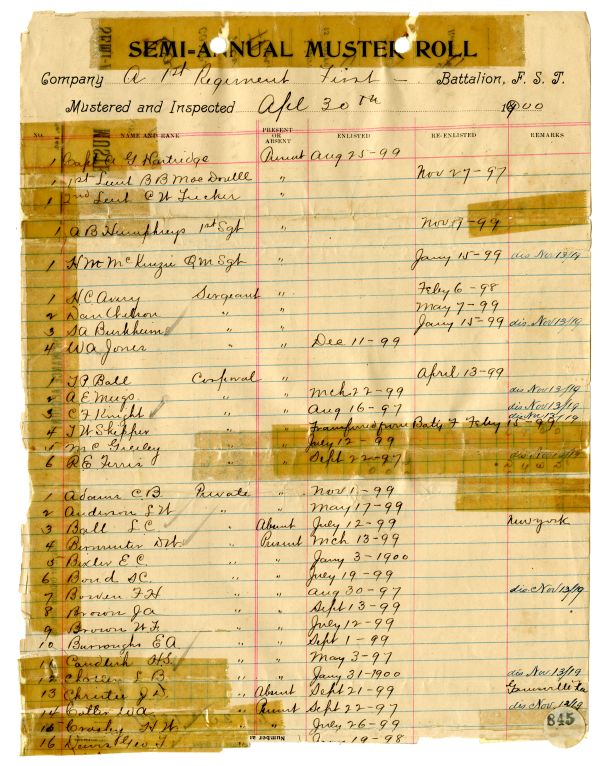 SEMI-ANNUAL MUSTER ROLL
Company A 1st Regiment First — Battalion, F. S. T.
Mustered and Inspected Apl 30th 1900
NO. NAME AND RANK PRESENT OR ABSENT ENLISTED RE-ENLISTED REMARKS
1 Capt A G Hartridge Present Aug 25-99
1 1st Lieut B B MacDonell " Nov 27-97
1 2nd Lieut C W Tucker "
1 A B Humphreys 1st Sgt " Nov 7-99
1 H M McKinzie Q M Sgt " Jany 15-99 dis Nov 13/19
1 H C Avery Sergeant " Feby 6-98
2 Dan " " May 7-99
3 SA Burkheim " " Jany 15-99 dis Nov 13/19
4 W A Jones " " Dec 11-99
1 T P Ball Corporal " April 13-99
2 A E " " Mch 22-99 dis Nov 13/19
3 C F Knight " " Aug 16-97 dis Nov 13/19
4 T W Skipper " " Transfered from Baty F Feby 15-99 dis Nov 13/19
M C Greeley " " July 12-99
6 R E Ferris " " Sept 22-97 dis Nov 13/19
1 Adams C B Private " Nov 1-99
2 Anderson S W " " May 17-99
3 Ball S C " Absent July 12-99 New york
4 D W " Present Mch 13-99
5 Bixler E C " " Jany 3-1900
6 Bond S C " " July 19-99
7 Bowen F H " " Aug 30-97 dis Nov 13/19
8 Brown J A " " Sept 13-99
9 Brown W F " " July 12-99
10 Burroughs E A " " Sept 1-99
11 Candlish H S " " May 3-97
12 L B " " Jany 31-1900 dis Nov 13/19
13 Christie J D " Absent Sept 21-99 Gainsville Fla
14 W A " Present Sept 22-97 dis Nov 13/19
15 Crosby H W " " July 26-99
16 Davis Geo T " " 19-98
Number as
845